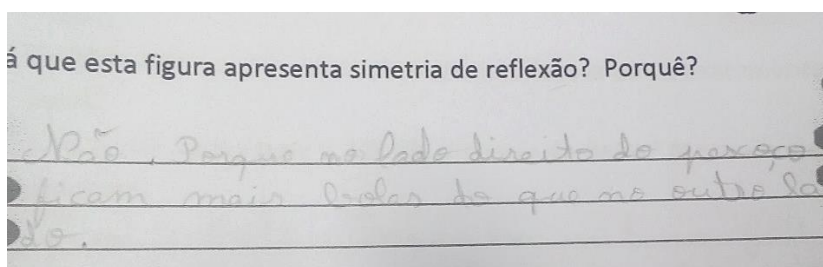 á que esta figura apresenta simetria de reflexão? Porquê?
Não, Porque no lado direito do pescoço
ficam mais bolas do que no outro la
do.